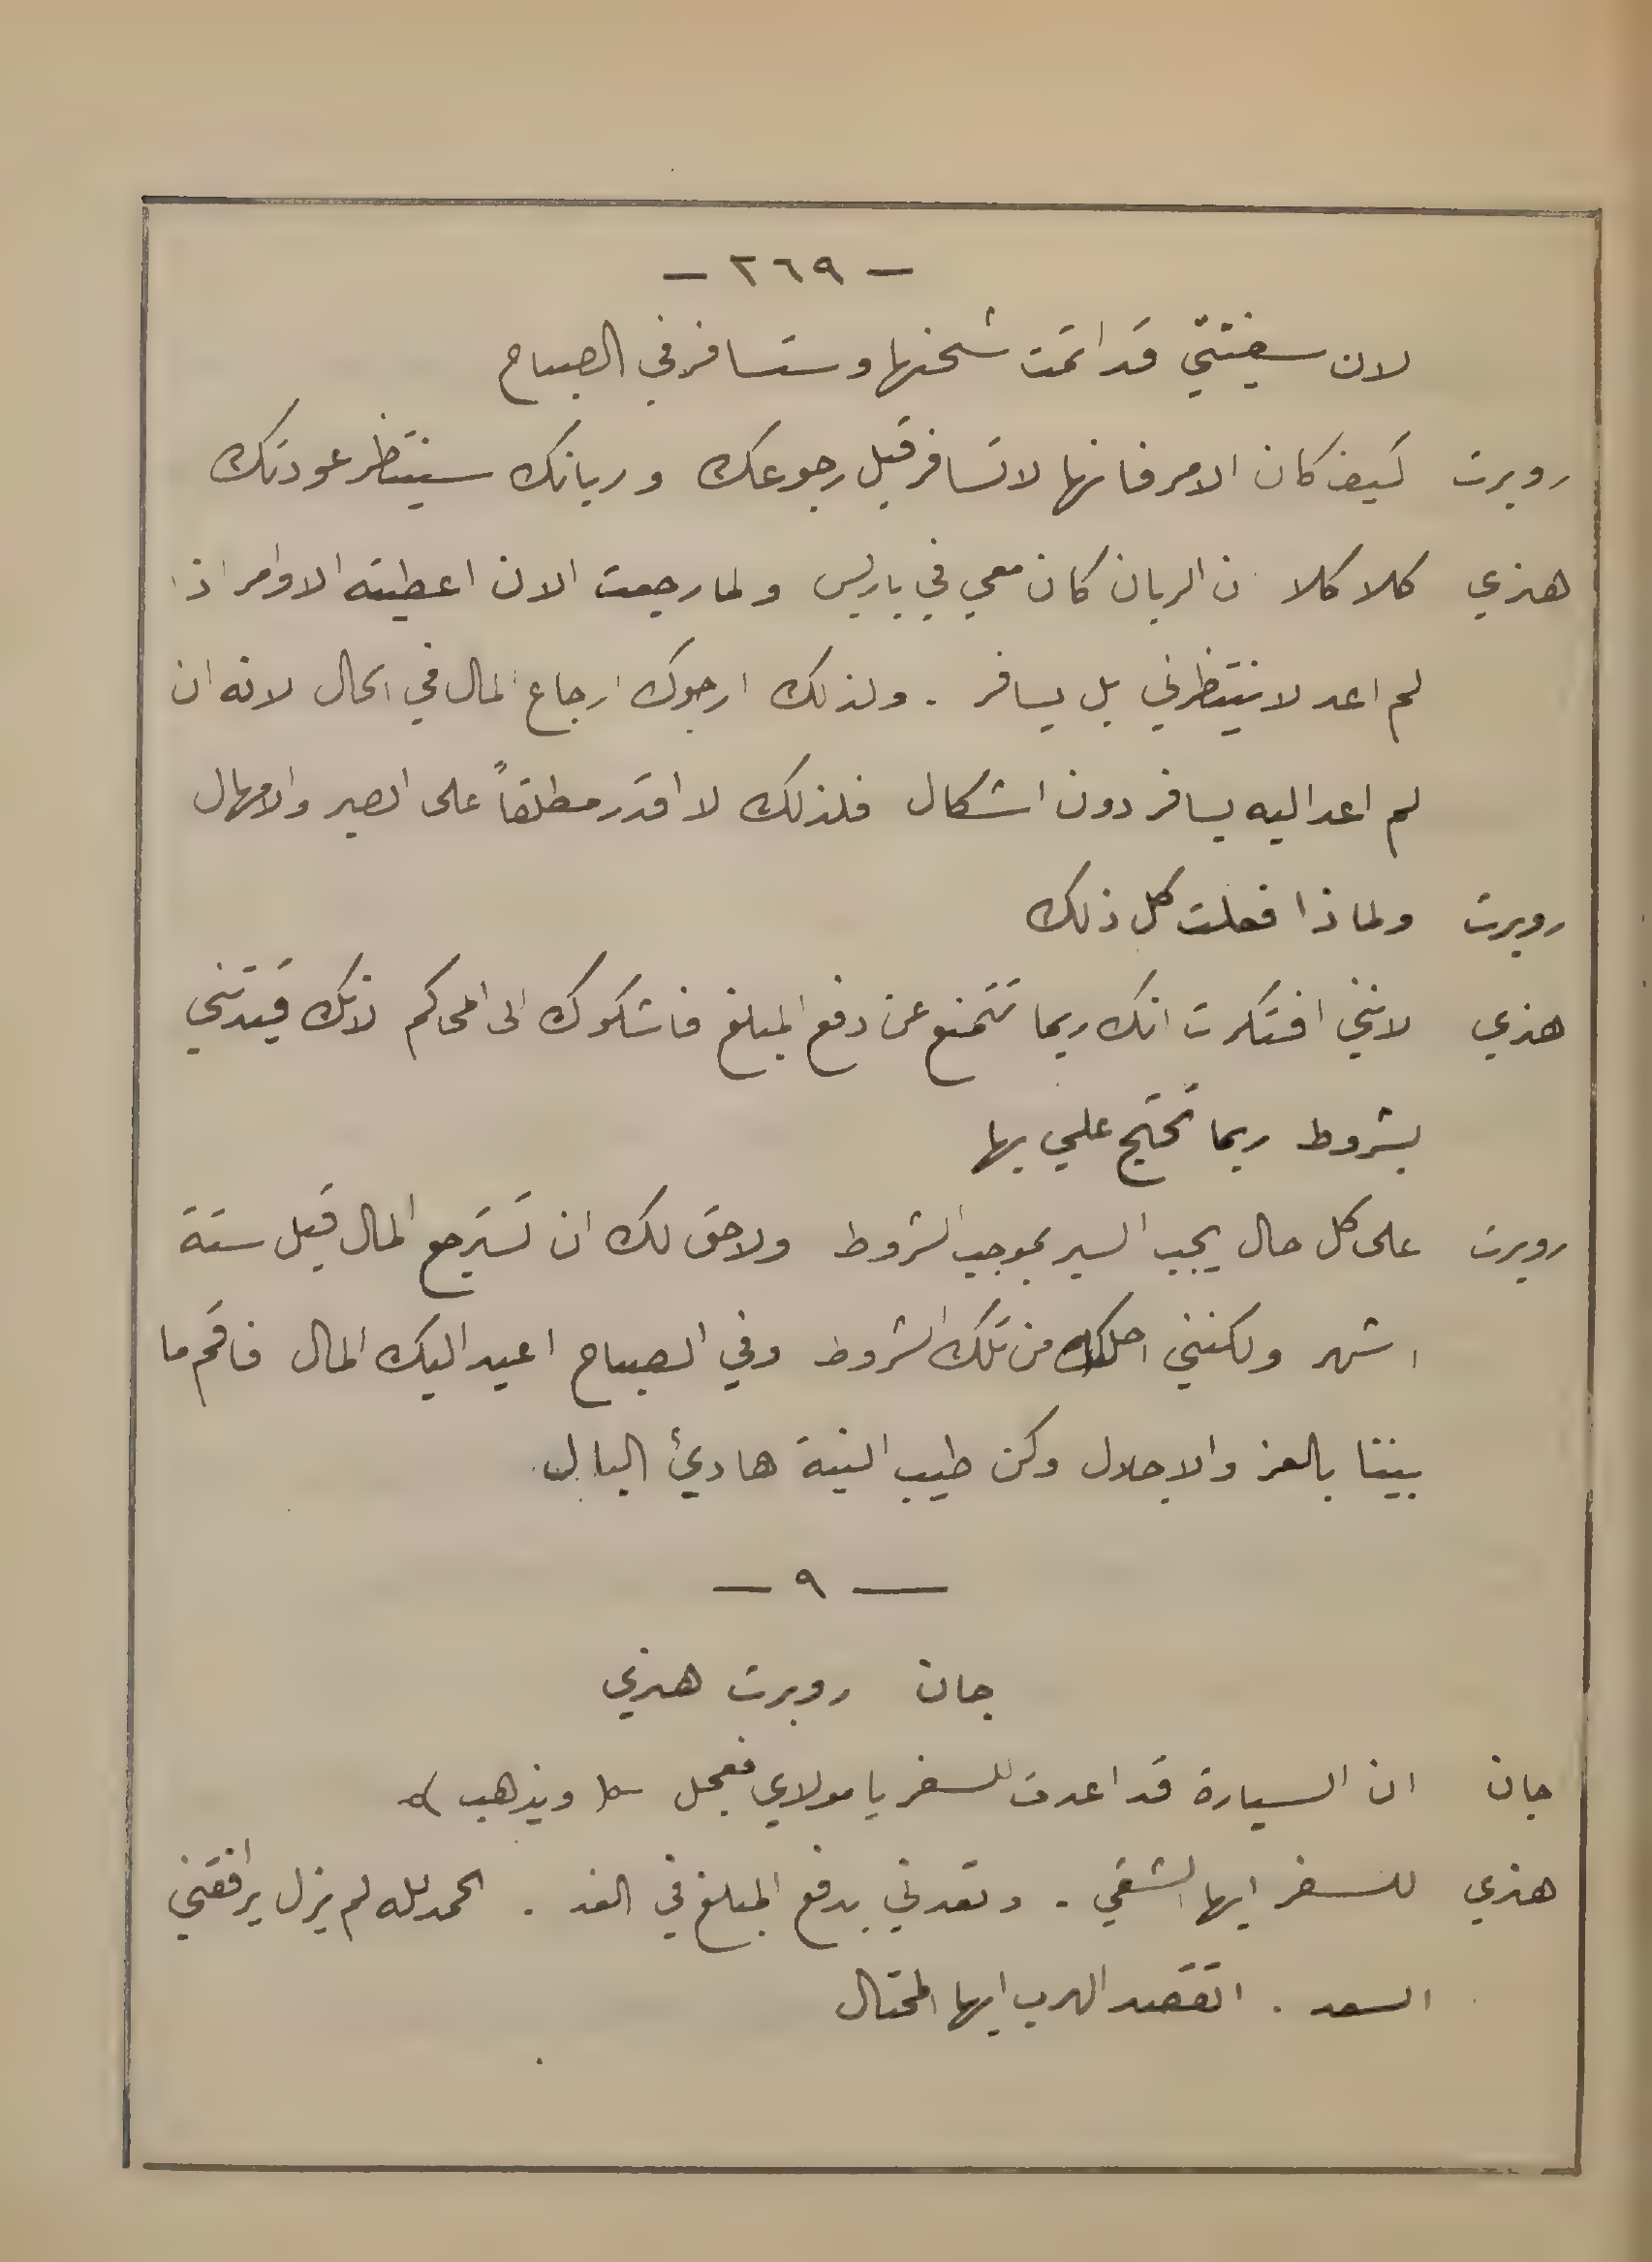 - ٢٦٩ -
لان سفينتي قد اتمت شحنها وستسافر في الصباح
روبرت كيف كان الامر فانها لا تسافر قبل رجوعك وربانك سينتظر عودتك
هنري كلا كلا ن الربان كان معي في باريس ولما رجعت الان اعطيته الاوامر اذا
لم اعد لا ينتظرني بل يسافر . ولذلك ارجوك ارجاع المال في الحال لانه ان
لم اعد اليه يسافر دون اشكال فلذلك لا اقدر مطلقاً على الصبر والامهال
روبرت ولماذا فعلت كل ذلك
هنري لانني افتكرت انك ربما تتمنع عن دفع المبلغ فاشكوك الى المحاكم لانك قيدتني
بشروط ربما تحتج علي بها
روبرت على كل حال يجب السير بموجب الشروط ولا حق لك ان تسترجع المال قبل ستة
اشهر ولكنني احلك من تلك الشروط وفي الصباح اعيد اليك المال فاقم ما
بيننا بالعز والاجلال وكن طيب النية هادئ البال
— ٩ —
جان روبرت هنري
جان ان السيارة قد اعدت للسفر يا مولاي فعجل (ويذهب)
هنري للسفر ايها الشقي . وتعدني بدفع المبلغ في الغد . الحمد لله لم يزل يرافقني
السعد . اتقصد الهرب ايها المحتال